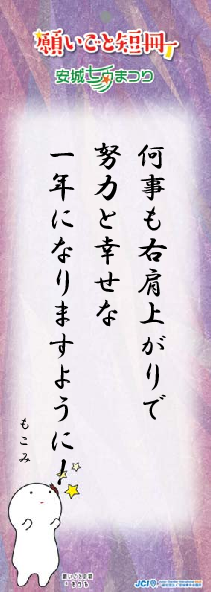 願いごと短冊
安城七夕まつり
何事も右肩上がりで
努力と幸せな
一年になりますように！
もこみ
JCI